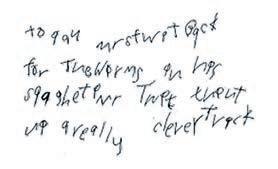 to gay mrstwet Back
for TheWorms an hes
spaghetemr Twet thent
up a really clever Track